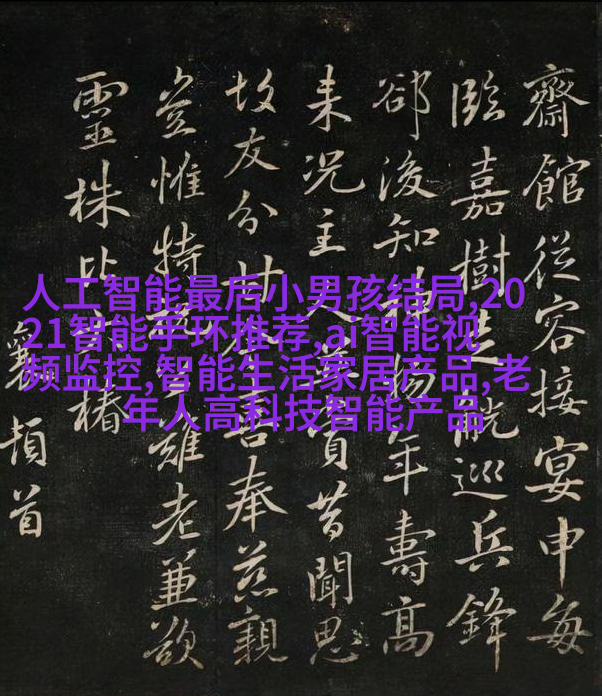 人工智能最后小男孩结局,20
21智能手环推荐,ai智能视
频监控,智能生活家居产品,老
年人高科技智能产品
齋館從容接宴申每
臨嘉樹是觥巡兵鋒
郤後知物年壽高
来況主人賓昔聞思
故友分甘奉慈親
豈惟持難老兼欲
靈株比椿
頓首